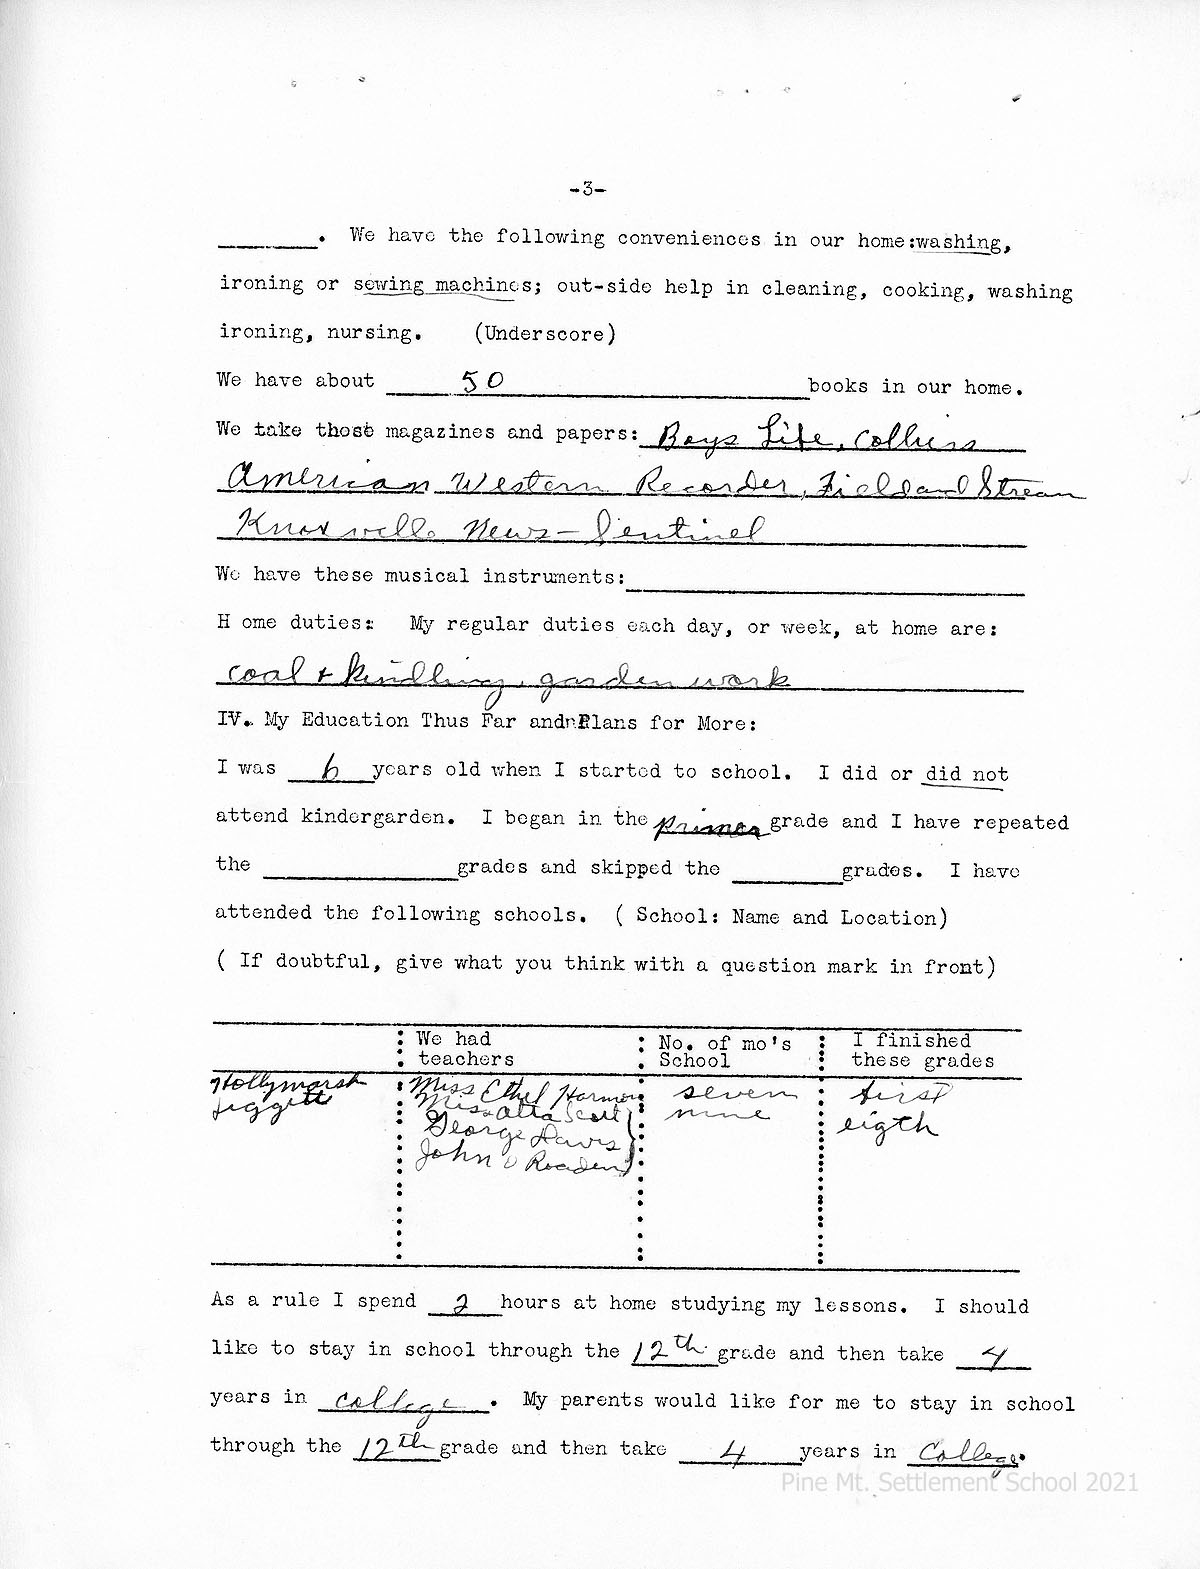 -3-
________. We have the following conveniences in our home:washing,
ironing or sewing machines; out-side help in cleaning, cooking, washing
ironing, nursing. (Underscore)
We have about 50 books in our home.
We take those magazines and papers: Boys Life, Colliers
American Western Recorder, Field and Stream
Knoxville News-Sentinel
We have these musical instruments:
H ome duties: My regular duties each day, or week, at home are:
coal + kindling, garden work
IV. My Education Thus Far and Plans for More:
I was 6 years old when I started to school. I did or did not
attend kindergarden. I began in the primer grade and I have repeated
the ________ grades and skipped the ________ grades. I have
attended the following schools. ( School: Name and Location)
( If doubtful, give what you think with a question mark in front)
We had teachers No. of mo's School I finished these grades
Hollymarsh Miss Ethel Harmon seven first
Jiggett Miss Alta Scott nine eigth
George Davis
John
As a rule I spend 2 hours at home studying my lessons. I should
like to stay in school through the 12th grade and then take 4
years in college. My parents would like for me to stay in school
through the 12th grade and then take 4 years in College.
Pine Mt. Settlement School 2021